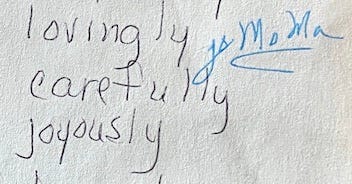 lovingly
go MoMa
carefully
joyously